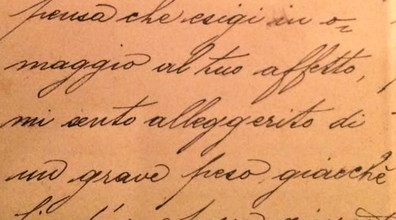 pensa che esigi in o=
maggio al tuo affetto,
mi sento alleggerito di
un grave peso, giacchè